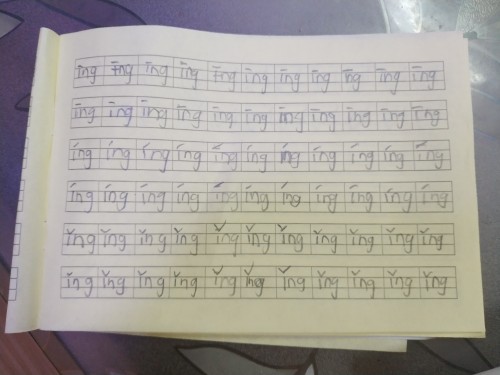 īng īng īng īng īng īng īng īng īng īng īng
īng īng īng īng īng īng īng īng īng īng īng
íng íng íng íng íng íng íng íng íng íng íng
íng íng íng íng íng íng íng íng íng íng íng
ǐng ǐng ǐng ǐng ǐng ǐng ǐng ǐng ǐng ǐng ǐng
ǐng ǐng ǐng ǐng ǐng ǐng ǐng ǐng ǐng ǐng ǐng